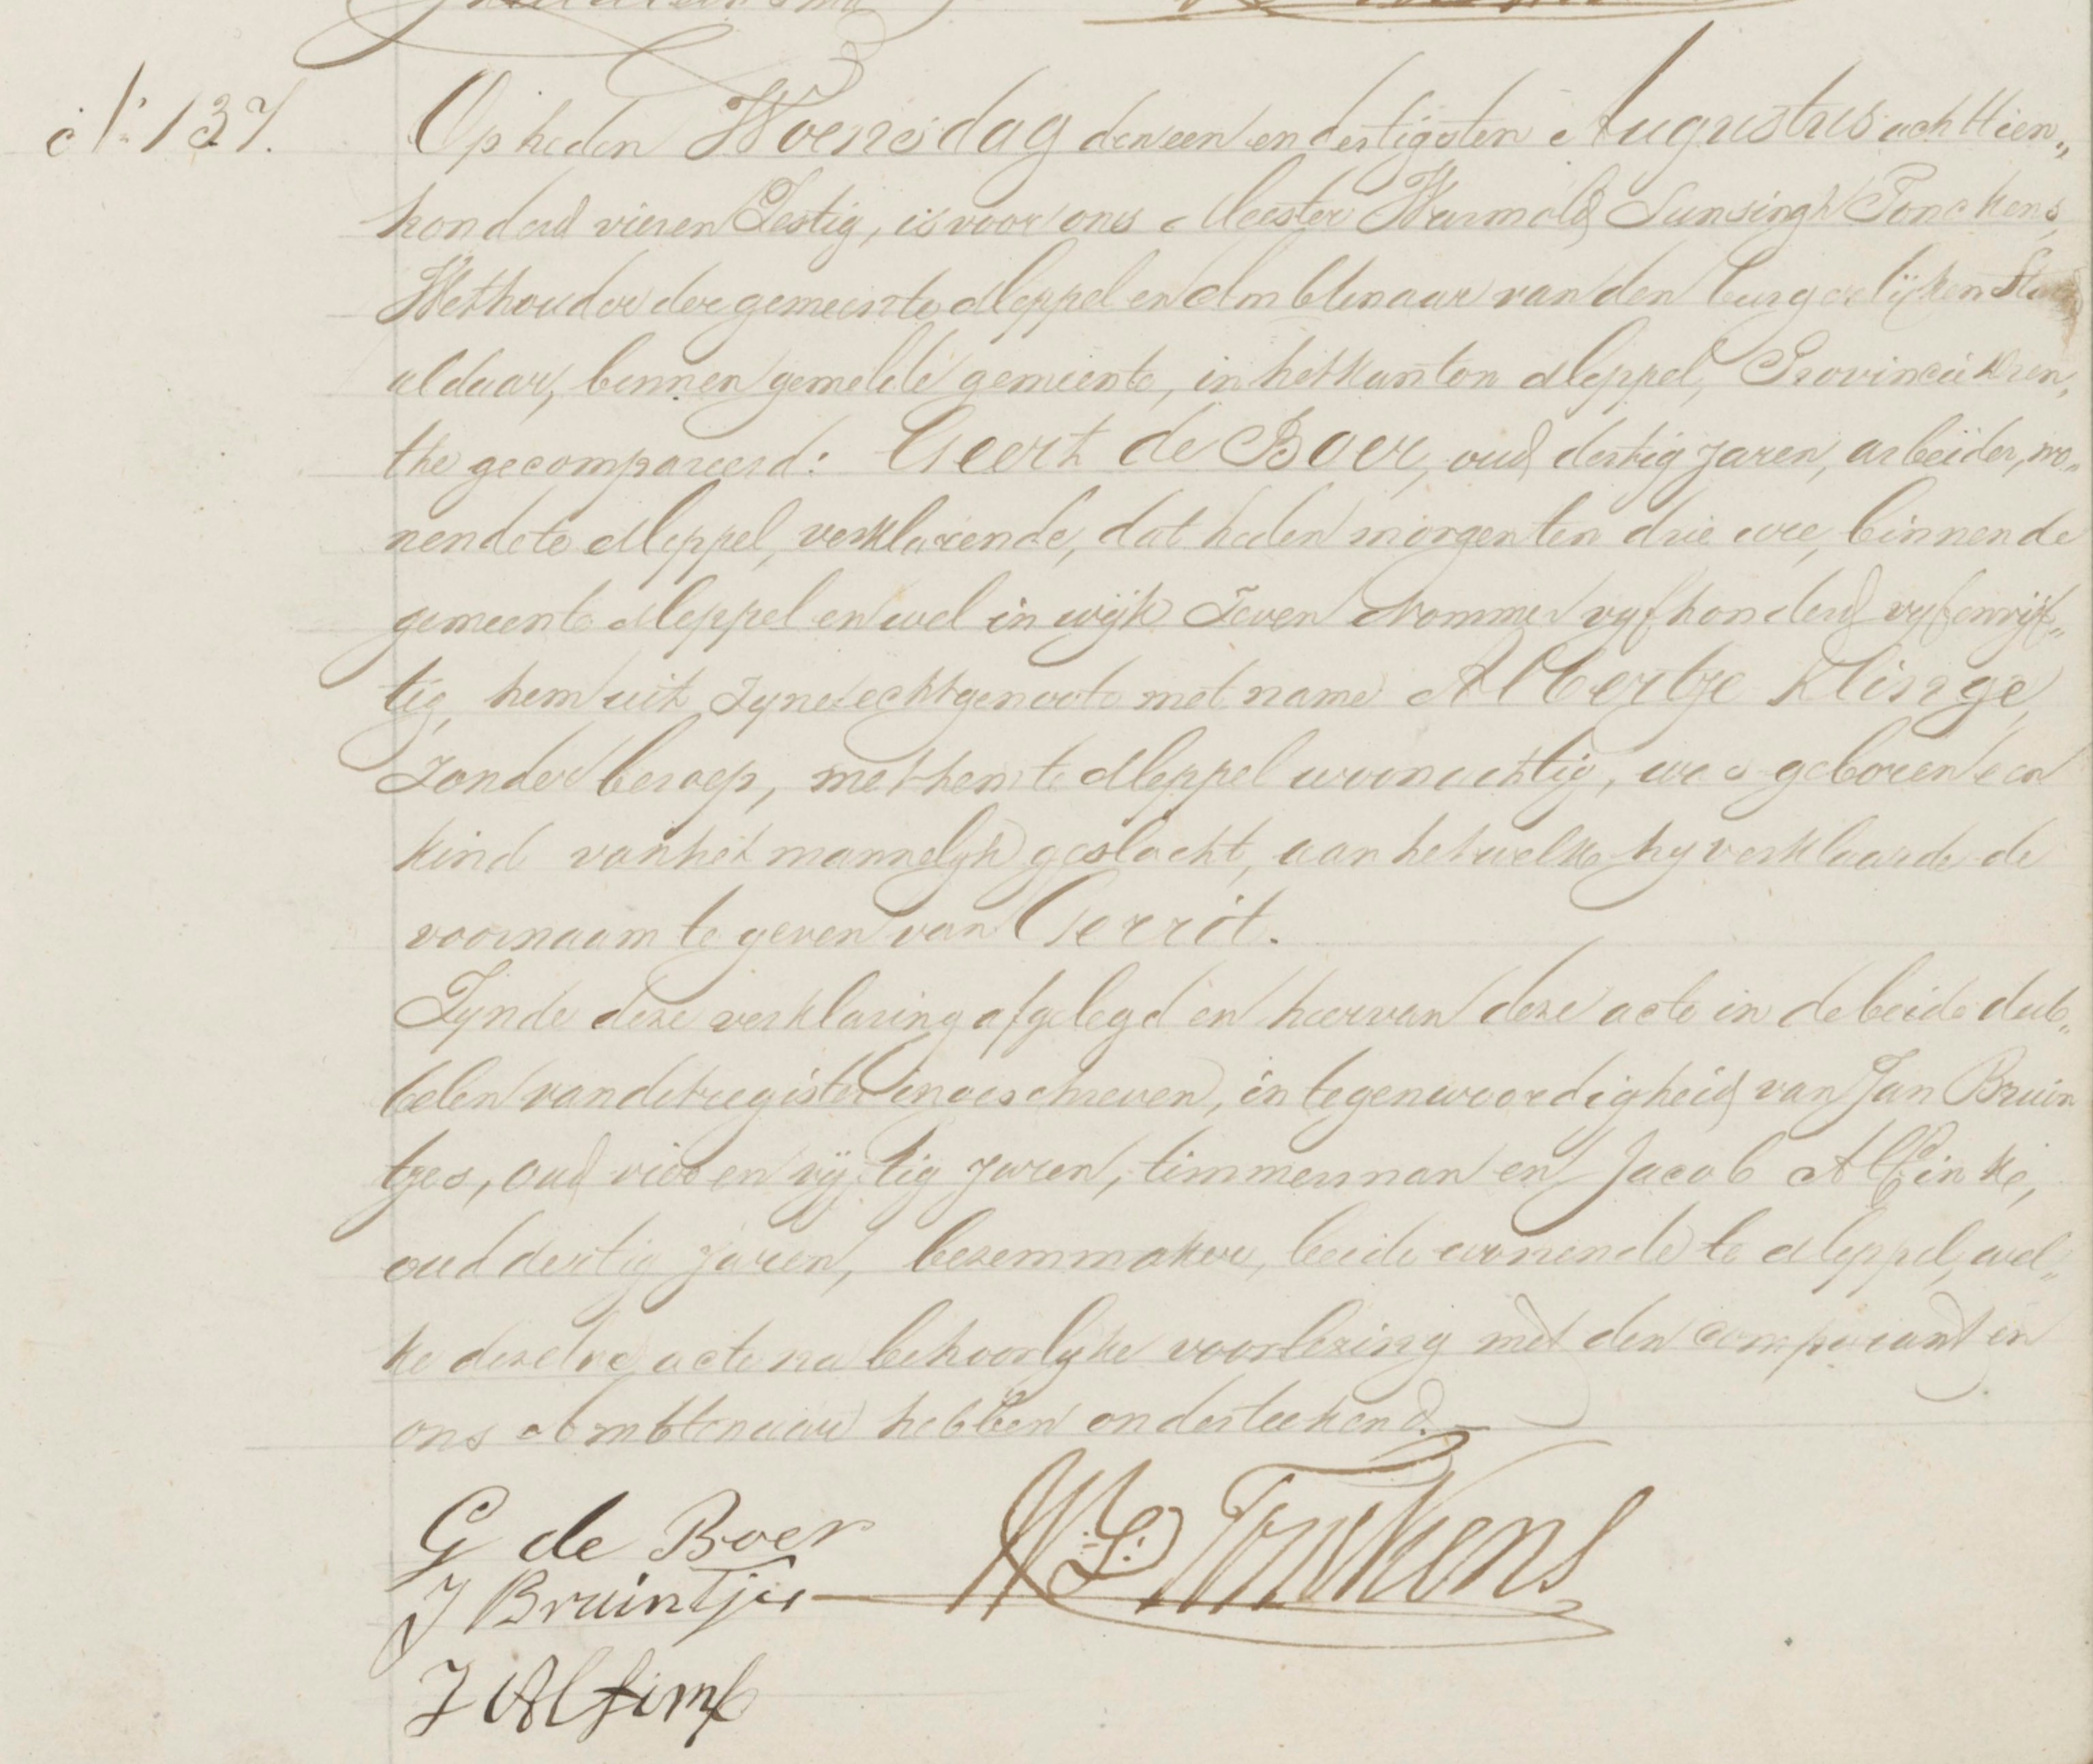 N° 137.
Op heden Woensdag den een en dertigsten Augustus achttien„
honderd vier en Zestig, is voor ons Meester Warmold Lunsingh Tonckens,
Wethouder der gemeente Meppel en Ambtenaar van den burgerlijken Stand
aldaar, binnen gemelde gemeente, in het kanton Meppel, Provincie Dren„
the gecompareerd: Geert de Boer, oud dertig jaren, arbeider, wo„
nende te Meppel, verklarende, dat heden morgen ten drie ure, binnen de
gemeente Meppel en wel in wijk Zeven Nommer vyfhonderd vyf en vyf„
tig, hem uit zyne echtgenoote met name Albertje Klinge,
zonder beroep, met hem te Meppel woonachtig, was geboren een
kind van het mannelyk geslacht, aan hetwelke hy verklaarde de
voornaam te geven van Gerrit.
Zynde deze verklaring afgelegd en hiervan deze acte in de beide dub„
belen van dit register ingeschreven, in tegenwoordigheid van Jan Bruin
tjes, oud vier en vijftig jaren, timmerman en Jacob
oud dertig jaren, bezemmaker, beide wonende te Meppel, wel„
ke dezelve acte na behoorlyke voorlezing met den comparant en
ons Ambtenaar hebben onderteekend.
G de Boer
W L Tonckens
J Bruintjes
J